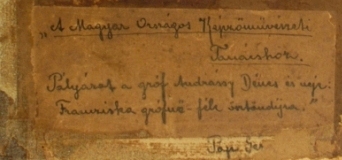 „A Magyar Országos Képzőművészeti
Tanácshoz.
Pályázat a gróf Andrássy Dénes és neje
Franciska grófnő-féle ösztöndíjra.”
Pap